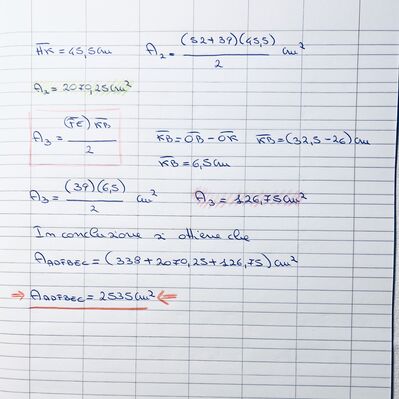 H̅K̅ = 45,5cm A₂ = (52+39)(45,5)/2 cm²
A₂ = 2070,25cm²
A₃ = (F̅E̅) K̅B̅/2 K̅B̅ = O̅B̅ - O̅K̅ K̅B̅ = (32,5-26)cm
K̅B̅ = 6,5cm
A₃ = (39)(6,5)/2 cm² A₃ = 126,75cm²
In conclusione si ottiene che
A_ADFBEC = (338+2070,25+126,75)cm²
⇒ A_ADFBEC = 2535cm² ⇐